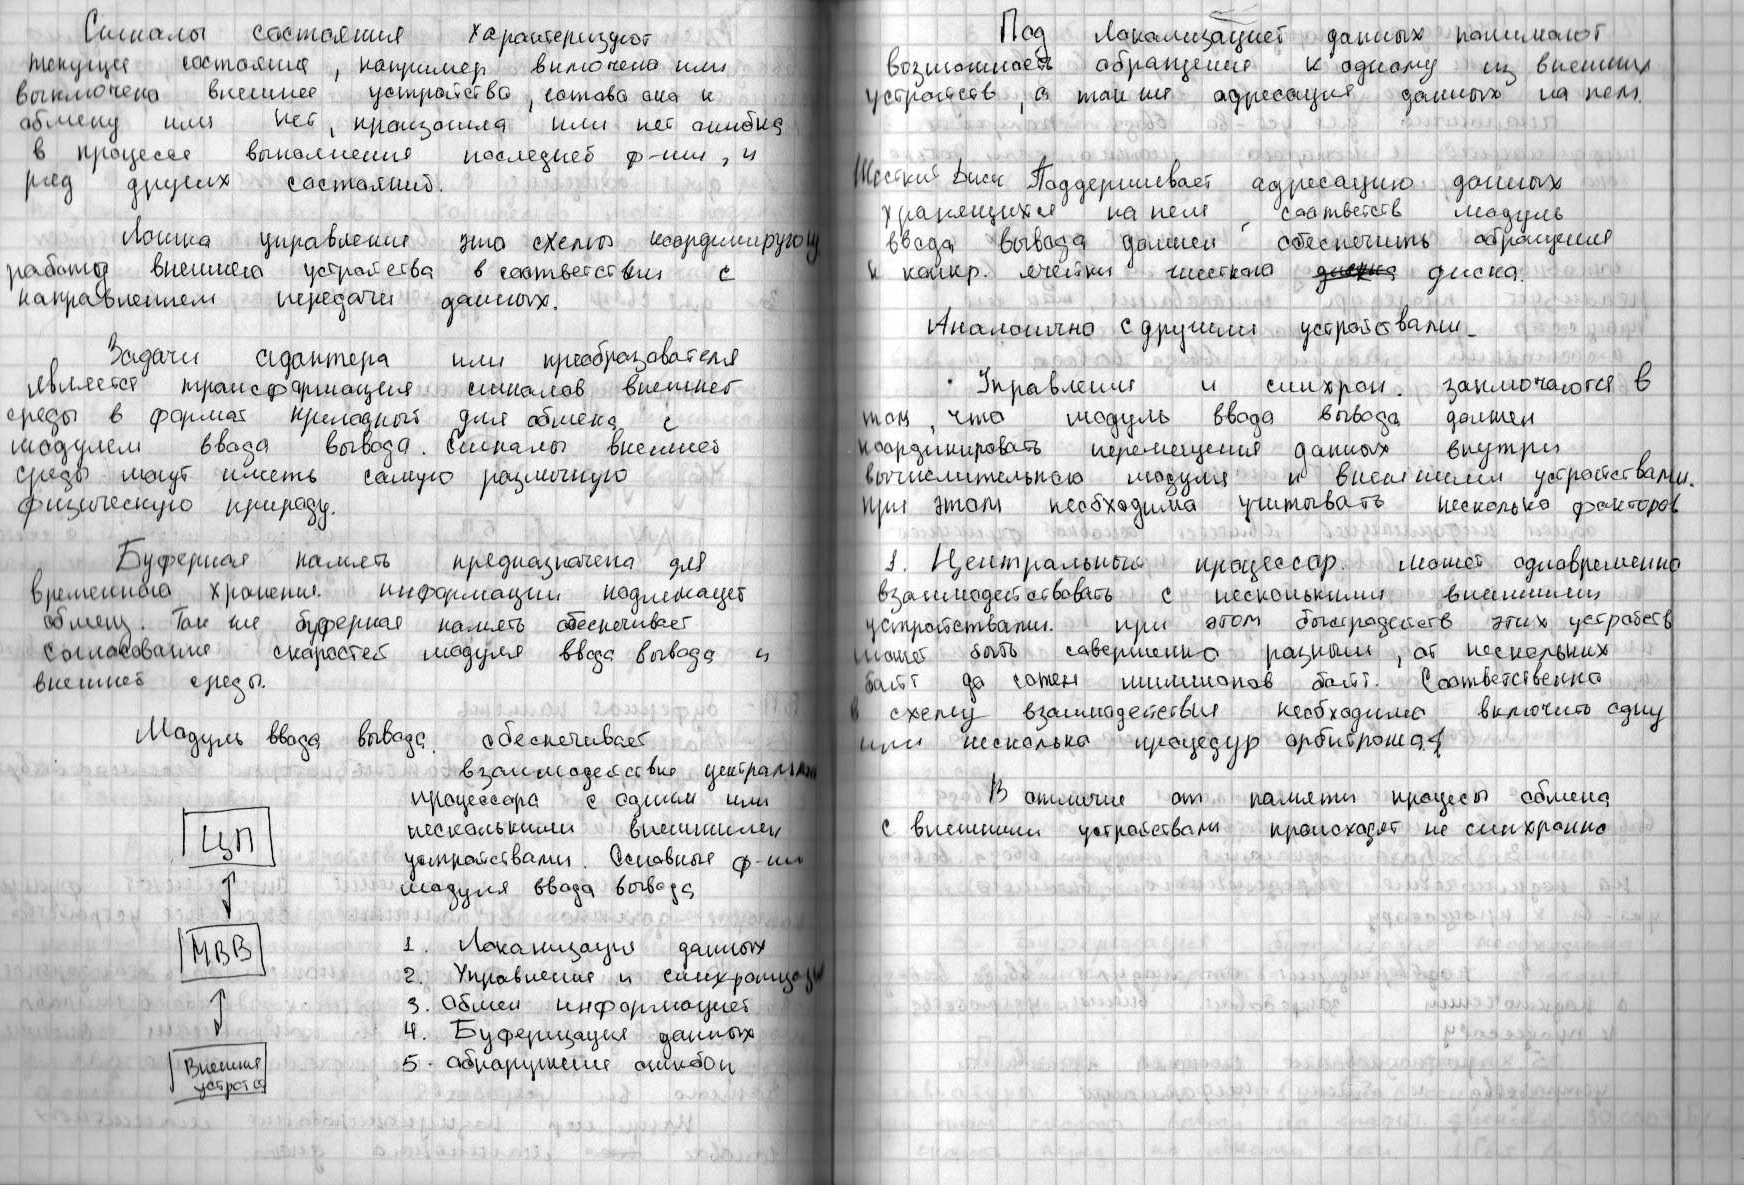 Сигналы состояния характеризуют
текущее состояние, например включено или
выключено внешнее устройство, готово оно к
обмену или нет, произошла или нет ошибка
в процессе выполнения последней ф-ии, и
ряд других состояний.
Логика управления это схемы координирующ
работу внешнего устройства в соответствии с
направлением передачи данных.
Задачи адаптера или преобразователя
является трансформация сигналов внешней
среды в формат пригодный для обмена с
модулем ввода вывода. Сигналы внешней
среды могут иметь самую различную
физическую природу.
Буферная память предназначена для
временного хранения информации подлежащей
обмену. Так же буферная память обеспечивает
согласование скоростей модуля ввода вывода и
внешней среды.
Модуль ввода вывода обеспечивает
взаимодействие централь
процессора с одним или
несколькими внешними
устройствами. Основные ф-ии
модуля ввода вывода
ЦП
МВВ
Внешния
устройств
1. Локализация данных
2. Управление и синхронизаци
3. Обмен информацией
4. Буферизация данных
5. обнаружение ошибок
Под локализацией данных понимают
возможность обращение к одному из внешних
устройств, а так же адресация данных на нем.
Жесткий диск Поддерживает адресацию данных
хранящихся на нем, соответств модуль
ввода вывода должен обеспечить обращение
к конкр. ячейки жесткого диска.
Аналогично с другими устройствами.
· Управление и синхрон. заключаются в
том, что модуль ввода вывода должен
координировать перемещения данных внутри
вычислительного модуля и внешними устройствами.
При этом необходимо учитывать несколько факторов
1. Центральный процессор может одновременно
взаимодействовать с несколькими внешними
устройствами. При этом быстродейств этих устройств
может быть совершенно разным, от нескольких
байт до сотен миллионов байт. Соответственно
в схему взаимодействия необходимо включить одну
или несколько процедур арбитража
В отличие от памяти процесы обмена
с внешними устройствами происходят не синхронно